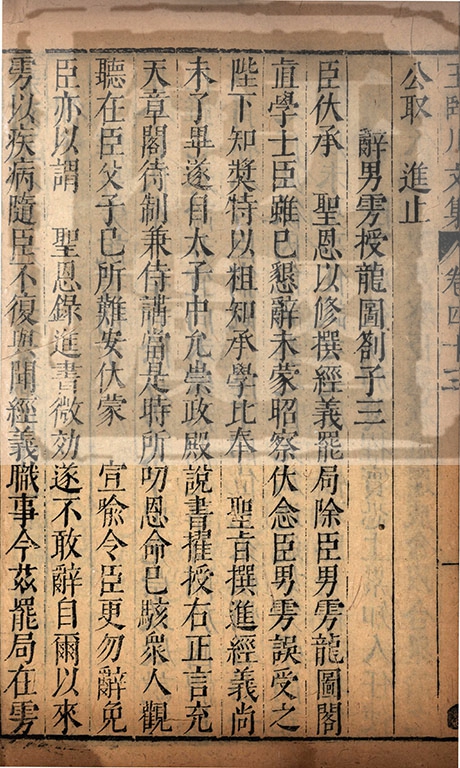 王臨川文集 卷四十三
公取 進止
辭男雱授龍圖劄子三
臣伏承 聖恩以修撰經義罷局除臣男雱龍圖閣
直學士臣雖已懇辭未蒙昭察伏念臣男雱誤受之
陛下知奬特以粗知承學比奉 聖旨撰進經義尚
未了畢遂自太子中允崇政殿說書擢授右正言充
天章閣待制兼侍講當是時所叨恩命已駭衆人觀
聽在臣父子已所難安伏蒙 宣喩令臣更勿辭免
臣亦以謂 聖恩錄進書微効遂不敢辭自爾以來
雱以疾病隨臣不復與聞經義職事今茲罷局在雱